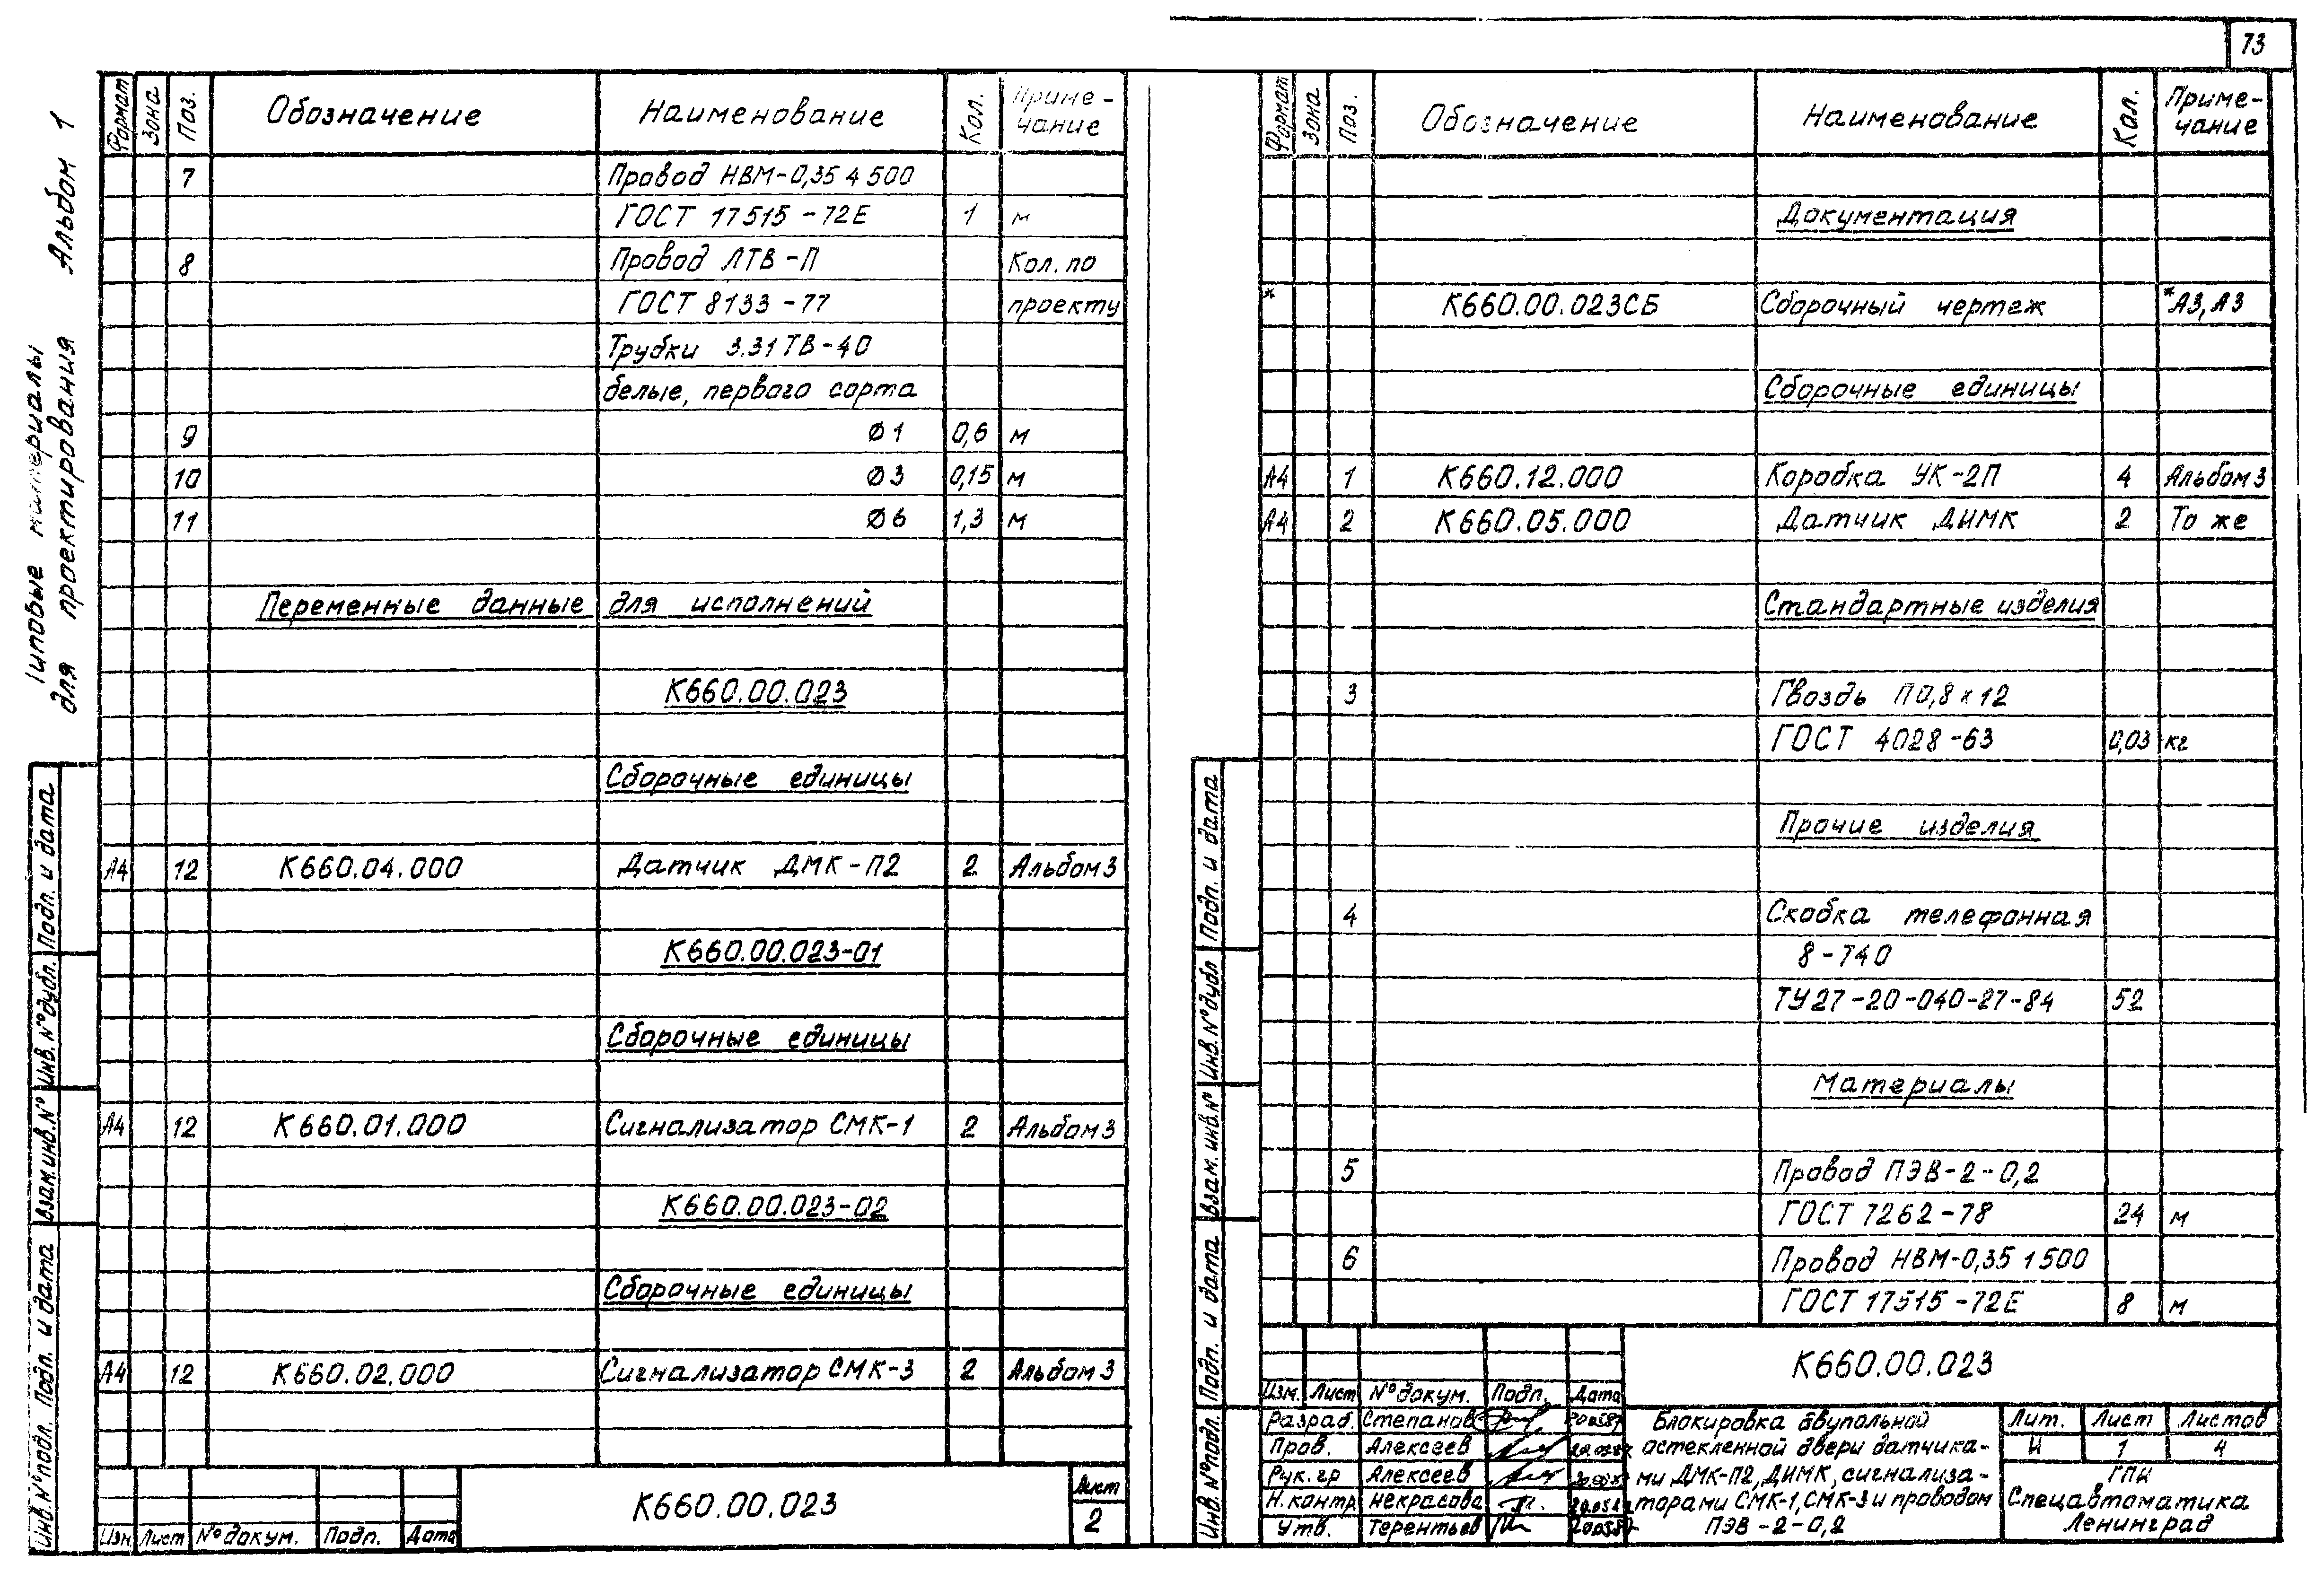 73
Типовые материалы
для проектирования Альбом 1
Формат Зона Поз. Обозначение Наименование Кол. Приме-
чание
7 Провод НВМ-0,35 4 500
ГОСТ 17515-72Е 1 м
8 Провод ЛТВ-П Кол. по
ГОСТ 8133-77 проекту
Трубки 3.31 ТВ-40
белые, первого сорта
9 Ø1 0,6 м
10 Ø3 0,15 м
11 Ø6 1,3 м
Переменные данные для исполнений
К660.00.023
Сборочные единицы
А4 12 К660.04.000 Датчик ДМК-П2 2 Альбом 3
К660.00.023-01
Сборочные единицы
А4 12 К660.01.000 Сигнализатор СМК-1 2 Альбом 3
К660.00.023-02
Сборочные единицы
А4 12 К660.02.000 Сигнализатор СМК-3 2 Альбом 3
Инв. № подл. Подп. и дата Взам. инв. № Инв. № дубл. Подп. и дата
Изм. Лист № докум. Подп. Дата
К660.00.023
Лист
2
Формат Зона Поз. Обозначение Наименование Кол. Приме-
чание
Документация
* К660.00.023СБ Сборочный чертеж *А3, А3
Сборочные единицы
А4 1 К660.12.000 Коробка УК-2П 4 Альбом 3
А4 2 К660.05.000 Датчик ДИМК 2 То же
Стандартные изделия
3 Гвоздь П 0,8х12
ГОСТ 4028-63 0,03 кг
Прочие изделия
4 Скобка телефонная
8-740
ТУ27-20-040-27-84 52
Материалы
5 Провод ПЭВ-2-0,2
ГОСТ 7262-78 24 м
6 Провод НВМ-0,35 1 500
ГОСТ 17515-72Е 8 м
Инв. № подл. Подп. и дата Взам. инв. № Инв. № дубл Подп. и дата
К660.00.023
Изм. Лист № докум. Подп. Дата
Разраб. Степанов
Пров. Алексеев
Рук. гр Алексеев
Н. контр. Некрасова
Утв. Терентьев
Блокировка двупольной
остекленной двери датчика-
ми ДМК-П2, ДИМК, сигнализа-
торами СМК-1, СМК-3 и проводом
ПЭВ-2-0,2
Лит. Лист Листов
И 1 4
ГПИ
Спецавтоматика
Ленинград